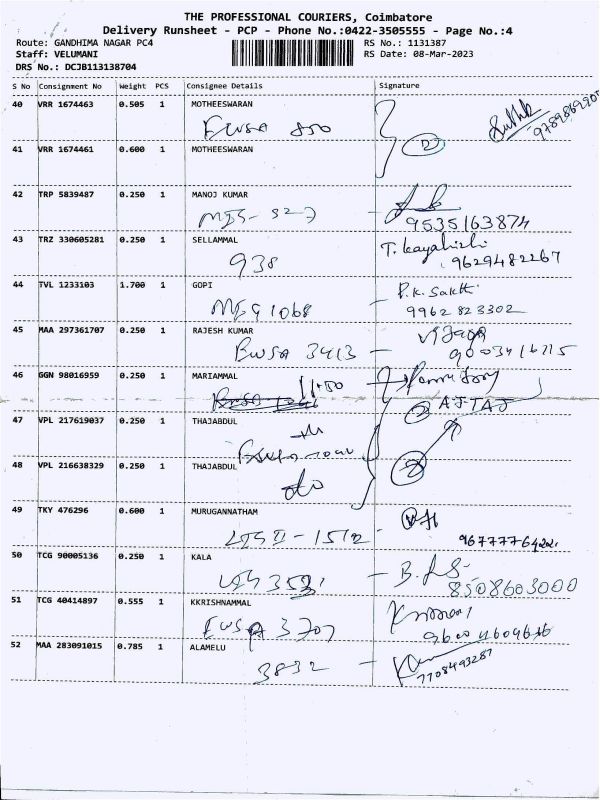 THE PROFESSIONAL COURIERS, Coimbatore
Delivery Runsheet - PCP - Phone No.:0422-3505555 - Page No.:4
Route: GANDHIMA NAGAR PC4 RS No.: 1131387
Staff: VELUMANI RS Date: 08-Mar-2023
DRS No.: DCJB113138704
S No Consignment No Weight PCS Consignee Details Signature
40 VRR 1674463 0.505 1 MOTHEESWARAN
EWSA 850
41 VRR 1674461 0.600 1 MOTHEESWARAN
2
42 TRP 5839487 0.250 1 MANOJ KUMAR
MIG- 327 - 9535163874
43 TRZ 330605281 0.250 1 SELLAMMAL
938 9629482267
44 TVL 1233103 1.700 1 GOPI
MIG 1068 - P.K. Sakthi
9962 823302
45 MAA 297361707 0.250 1 RAJESH KUMAR
EWSA 3413 -
46 GGN 98016959 0.250 1 MARIAMMAL
2 AJTAJ
47 VPL 217619037 0.250 1 THAJABDUL
48 VPL 216638329 0.250 1 THAJABDUL
do 2
49 TKY 476296 0.600 1 MURUGANNATHAM
LIG II - 1512 -
50 TCG 90005136 0.250 1 KALA
LIG 3531 - 8508603000
51 TCG 40414897 0.555 1 KKRISHNAMMAL
EWSA 3707
52 MAA 283091015 0.785 1 ALAMELU
3832 - 7708493287